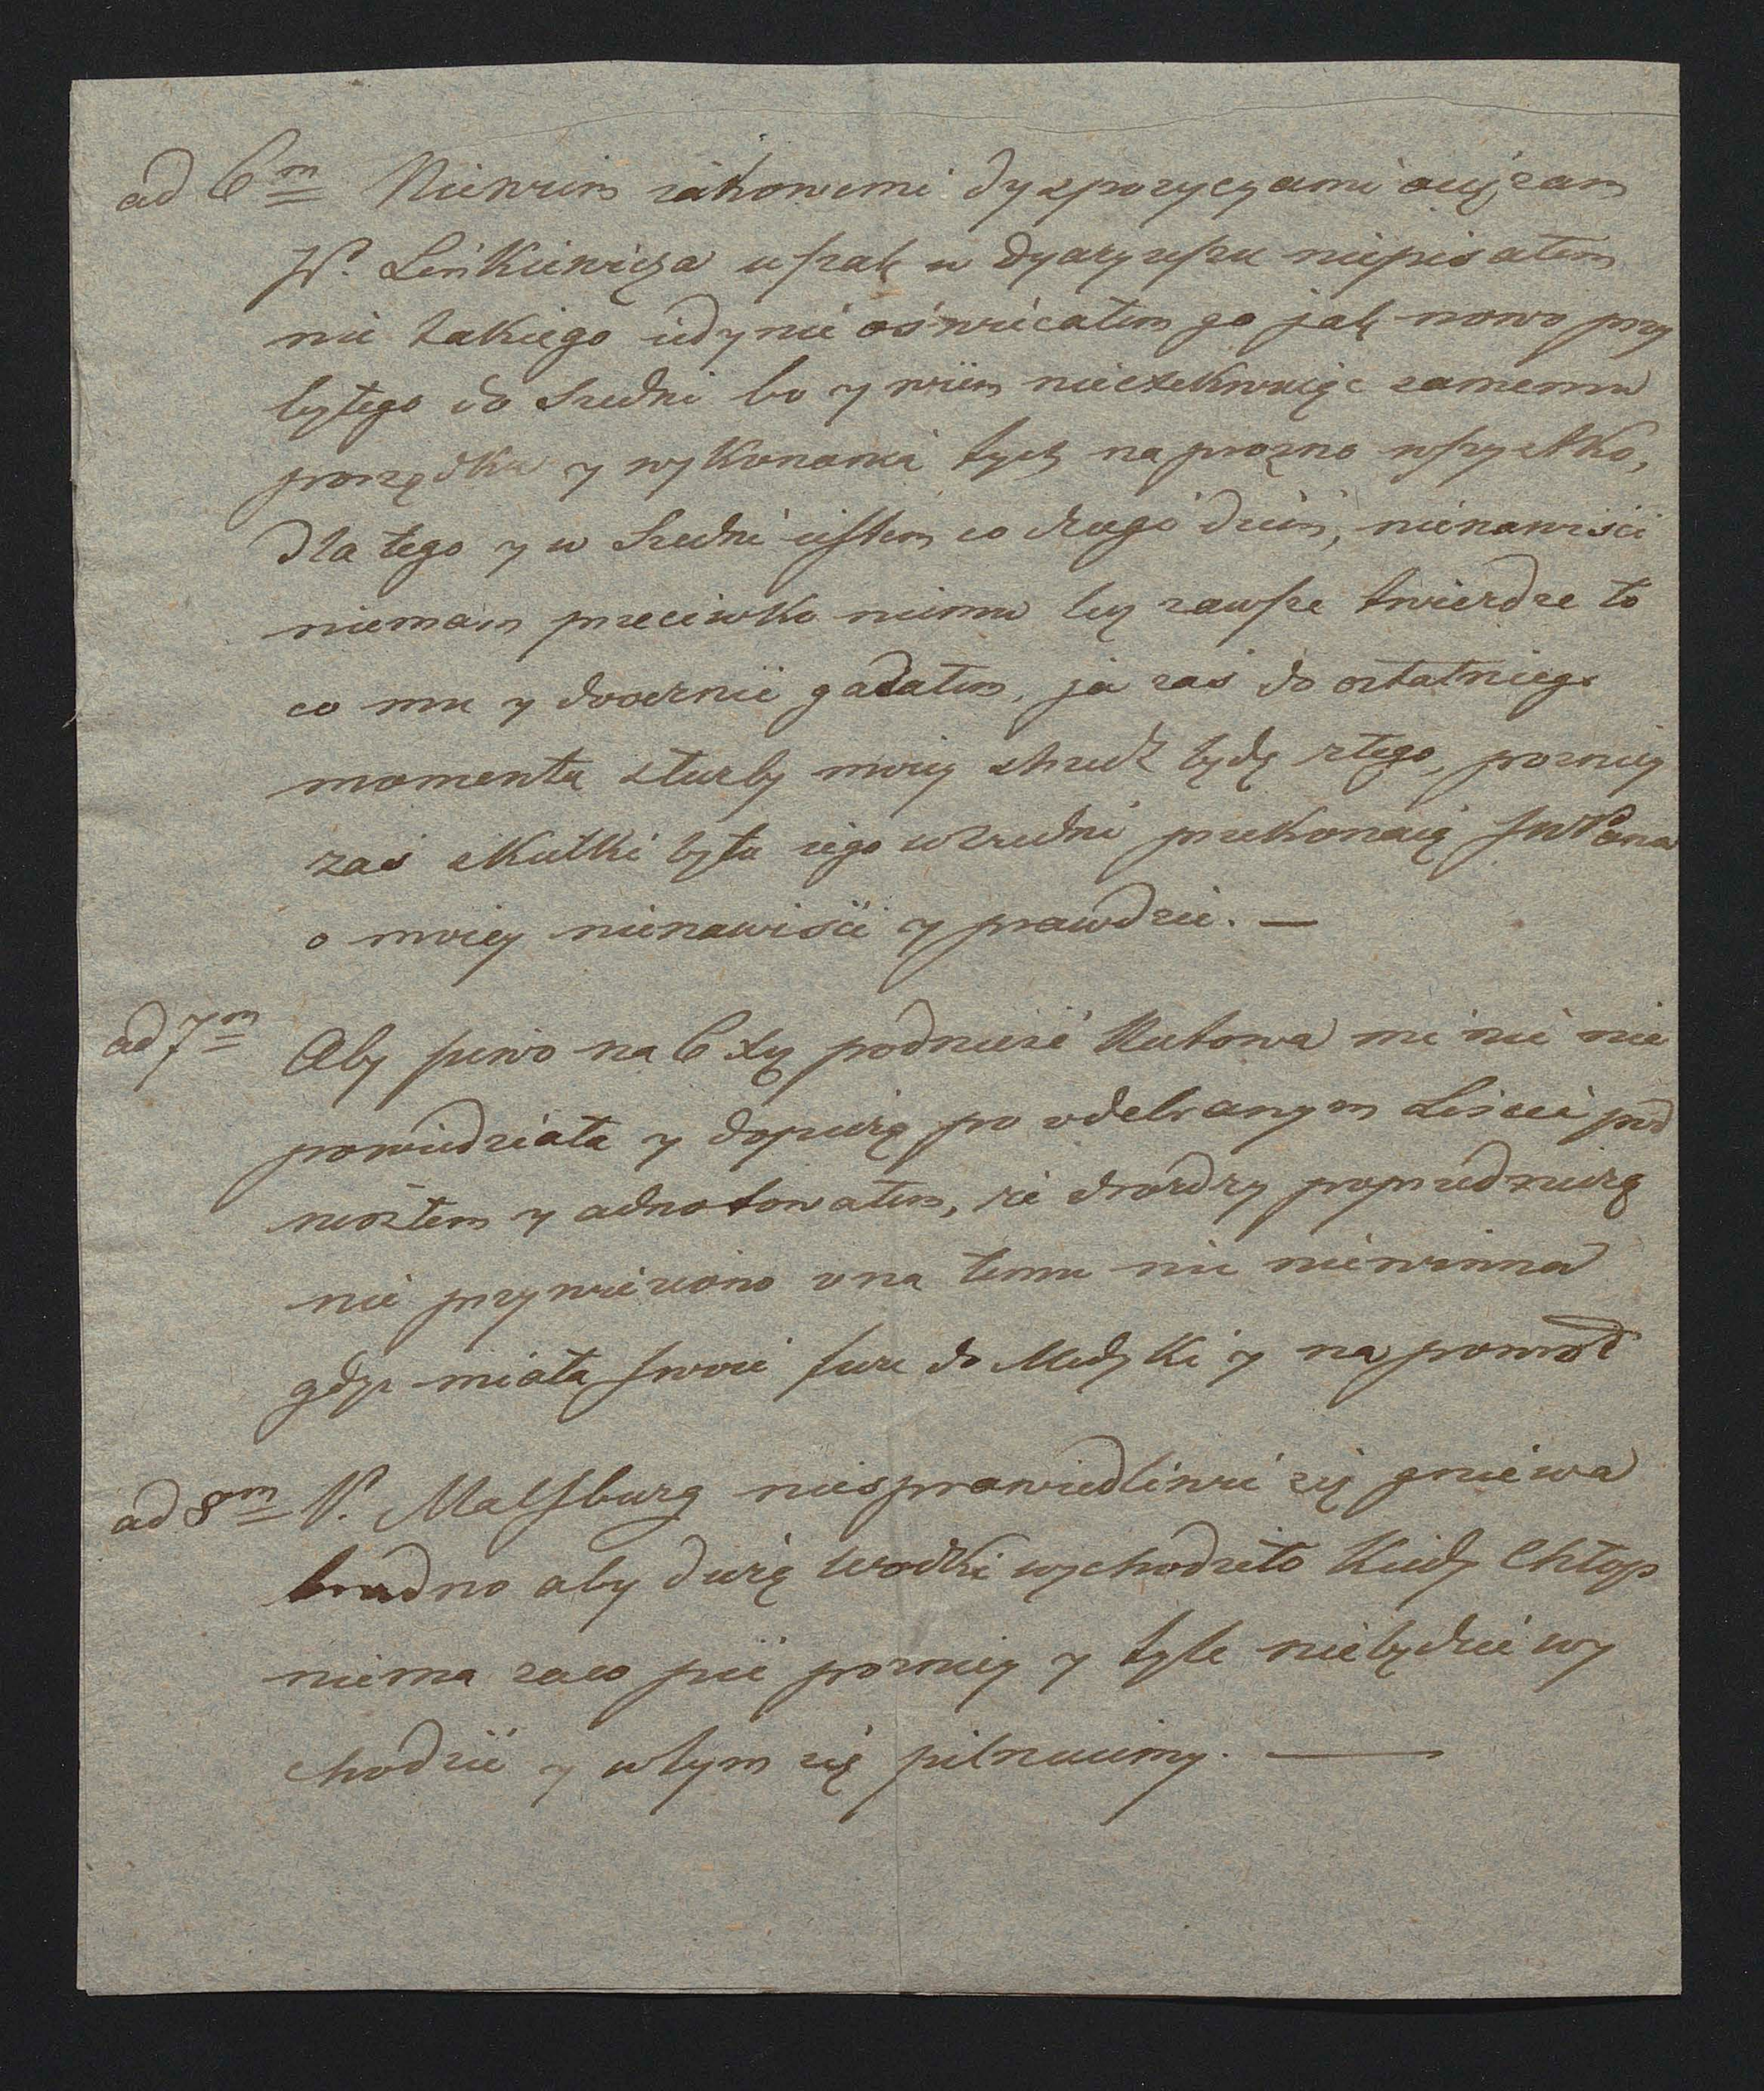 ad 6m Niewiem iakowemi dyspozycyami ociężam
P. Linkiewicza wszak w dyaryuszu niepisałem
nic takiego iedynie oświecałem go jak nowo przy
byłego do Średni bo y wiem nieczekaiąc samemu
porządku y wykonania tych naprożno wszystko,
Dla tego y w Średni iestem co drugi dzień, nienawiści
niemam przeciwko niemu lecz zawsze twierdze to
co mu y dwornie gadałem, ja zaś do ostatniego
momentu służby moiey strzedz będę złego, pozniey
zaś skutki bytu iego w Średni przekonaią JWPana
o moiey nienawiści y prawdzie. —
ad 7m Aby piwo na 6 xy podnieść Kutowa mi nic nie
powiedziała y dopierę po odebranym Liście pod
niosłem y adnotowałem, że drożdzy poprzedniczę
nie przywieziono ona temu nic niewinna
gdyż miała swoie fure do Medyki y na powrót
ad 8m P. Malsburg niesprawiedliwie się gniewa
trudno aby dużę wodki wychodziło kiedy Chłop
niema zaco pić pozniey y tyle niebędzie wy
chodzić y w tym się pilnuiemy. —